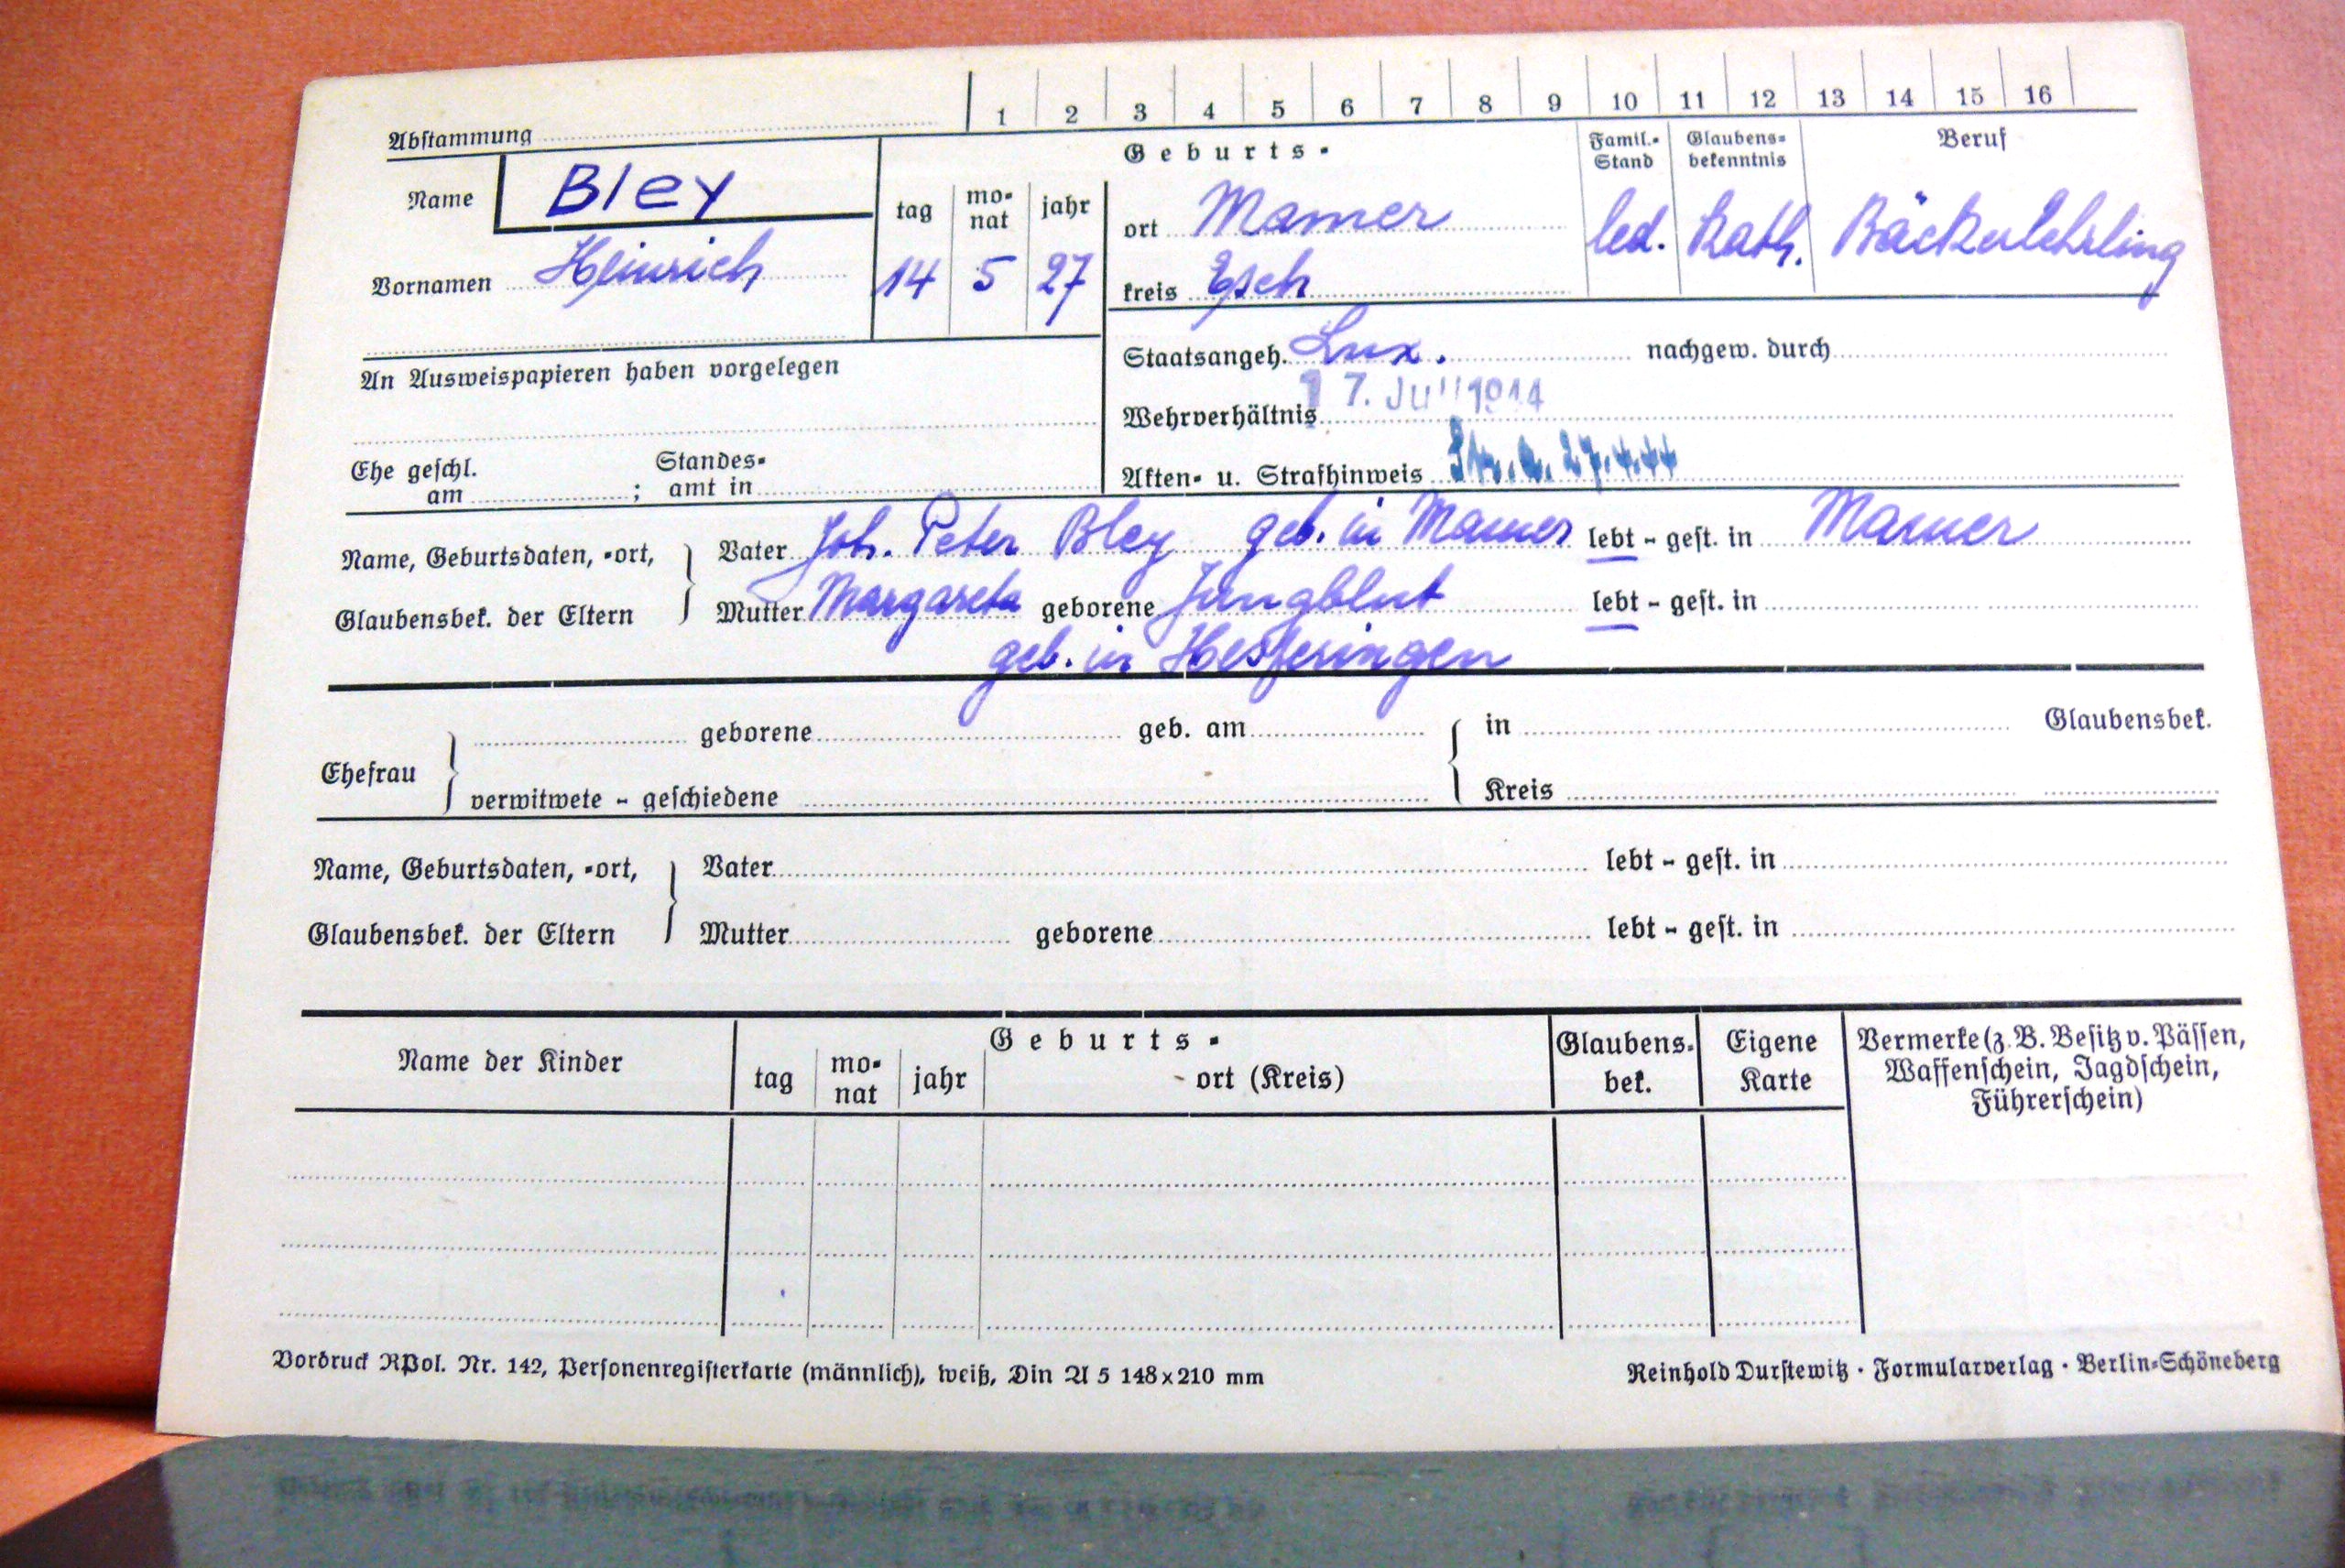 1 2 3 4 5 6 7 8 9 10 11 12 13 14 15 16
Abstammung
Geburts- Famil.- Stand Glaubens- bekenntnis Beruf
Name Bley
tag mo- nat jahr ort Mamer
led. Kath. Bäckerlehrling
Vornamen Heinrich 14 5 27 kreis Esch
An Ausweispapieren haben vorgelegen
Staatsangeh. Lux. nachgew. durch
17. Juli 1944
Wehrverhältnis
Ehe geschl. am ; Standes- amt in
Akten- u. Strafhinweis 27.4.44
Name, Geburtsdaten, -ort, Vater Joh. Peter Bley geb. in Mamer lebt - gest. in Mamer
Glaubensbek. der Eltern Mutter Margareta geborene Jungblut lebt - gest. in
geb. in
Ehefrau geborene geb. am in Glaubensbek.
verwitwete - geschiedene Kreis
Name, Geburtsdaten, -ort, Vater lebt - gest. in
Glaubensbek. der Eltern Mutter geborene lebt - gest. in
Name der Kinder Geburts- Glaubens- bek. Eigene Karte Vermerke (z. B. Besitz v. Pässen,
tag mo- nat jahr ort (Kreis) Waffenschein, Jagdschein,
Führerschein)
Vordruck RPol. Nr. 142, Personenregisterkarte (männlich), weiß, Din A 5 148x210 mm Reinhold Durstewitz · Formularverlag · Berlin-Schöneberg